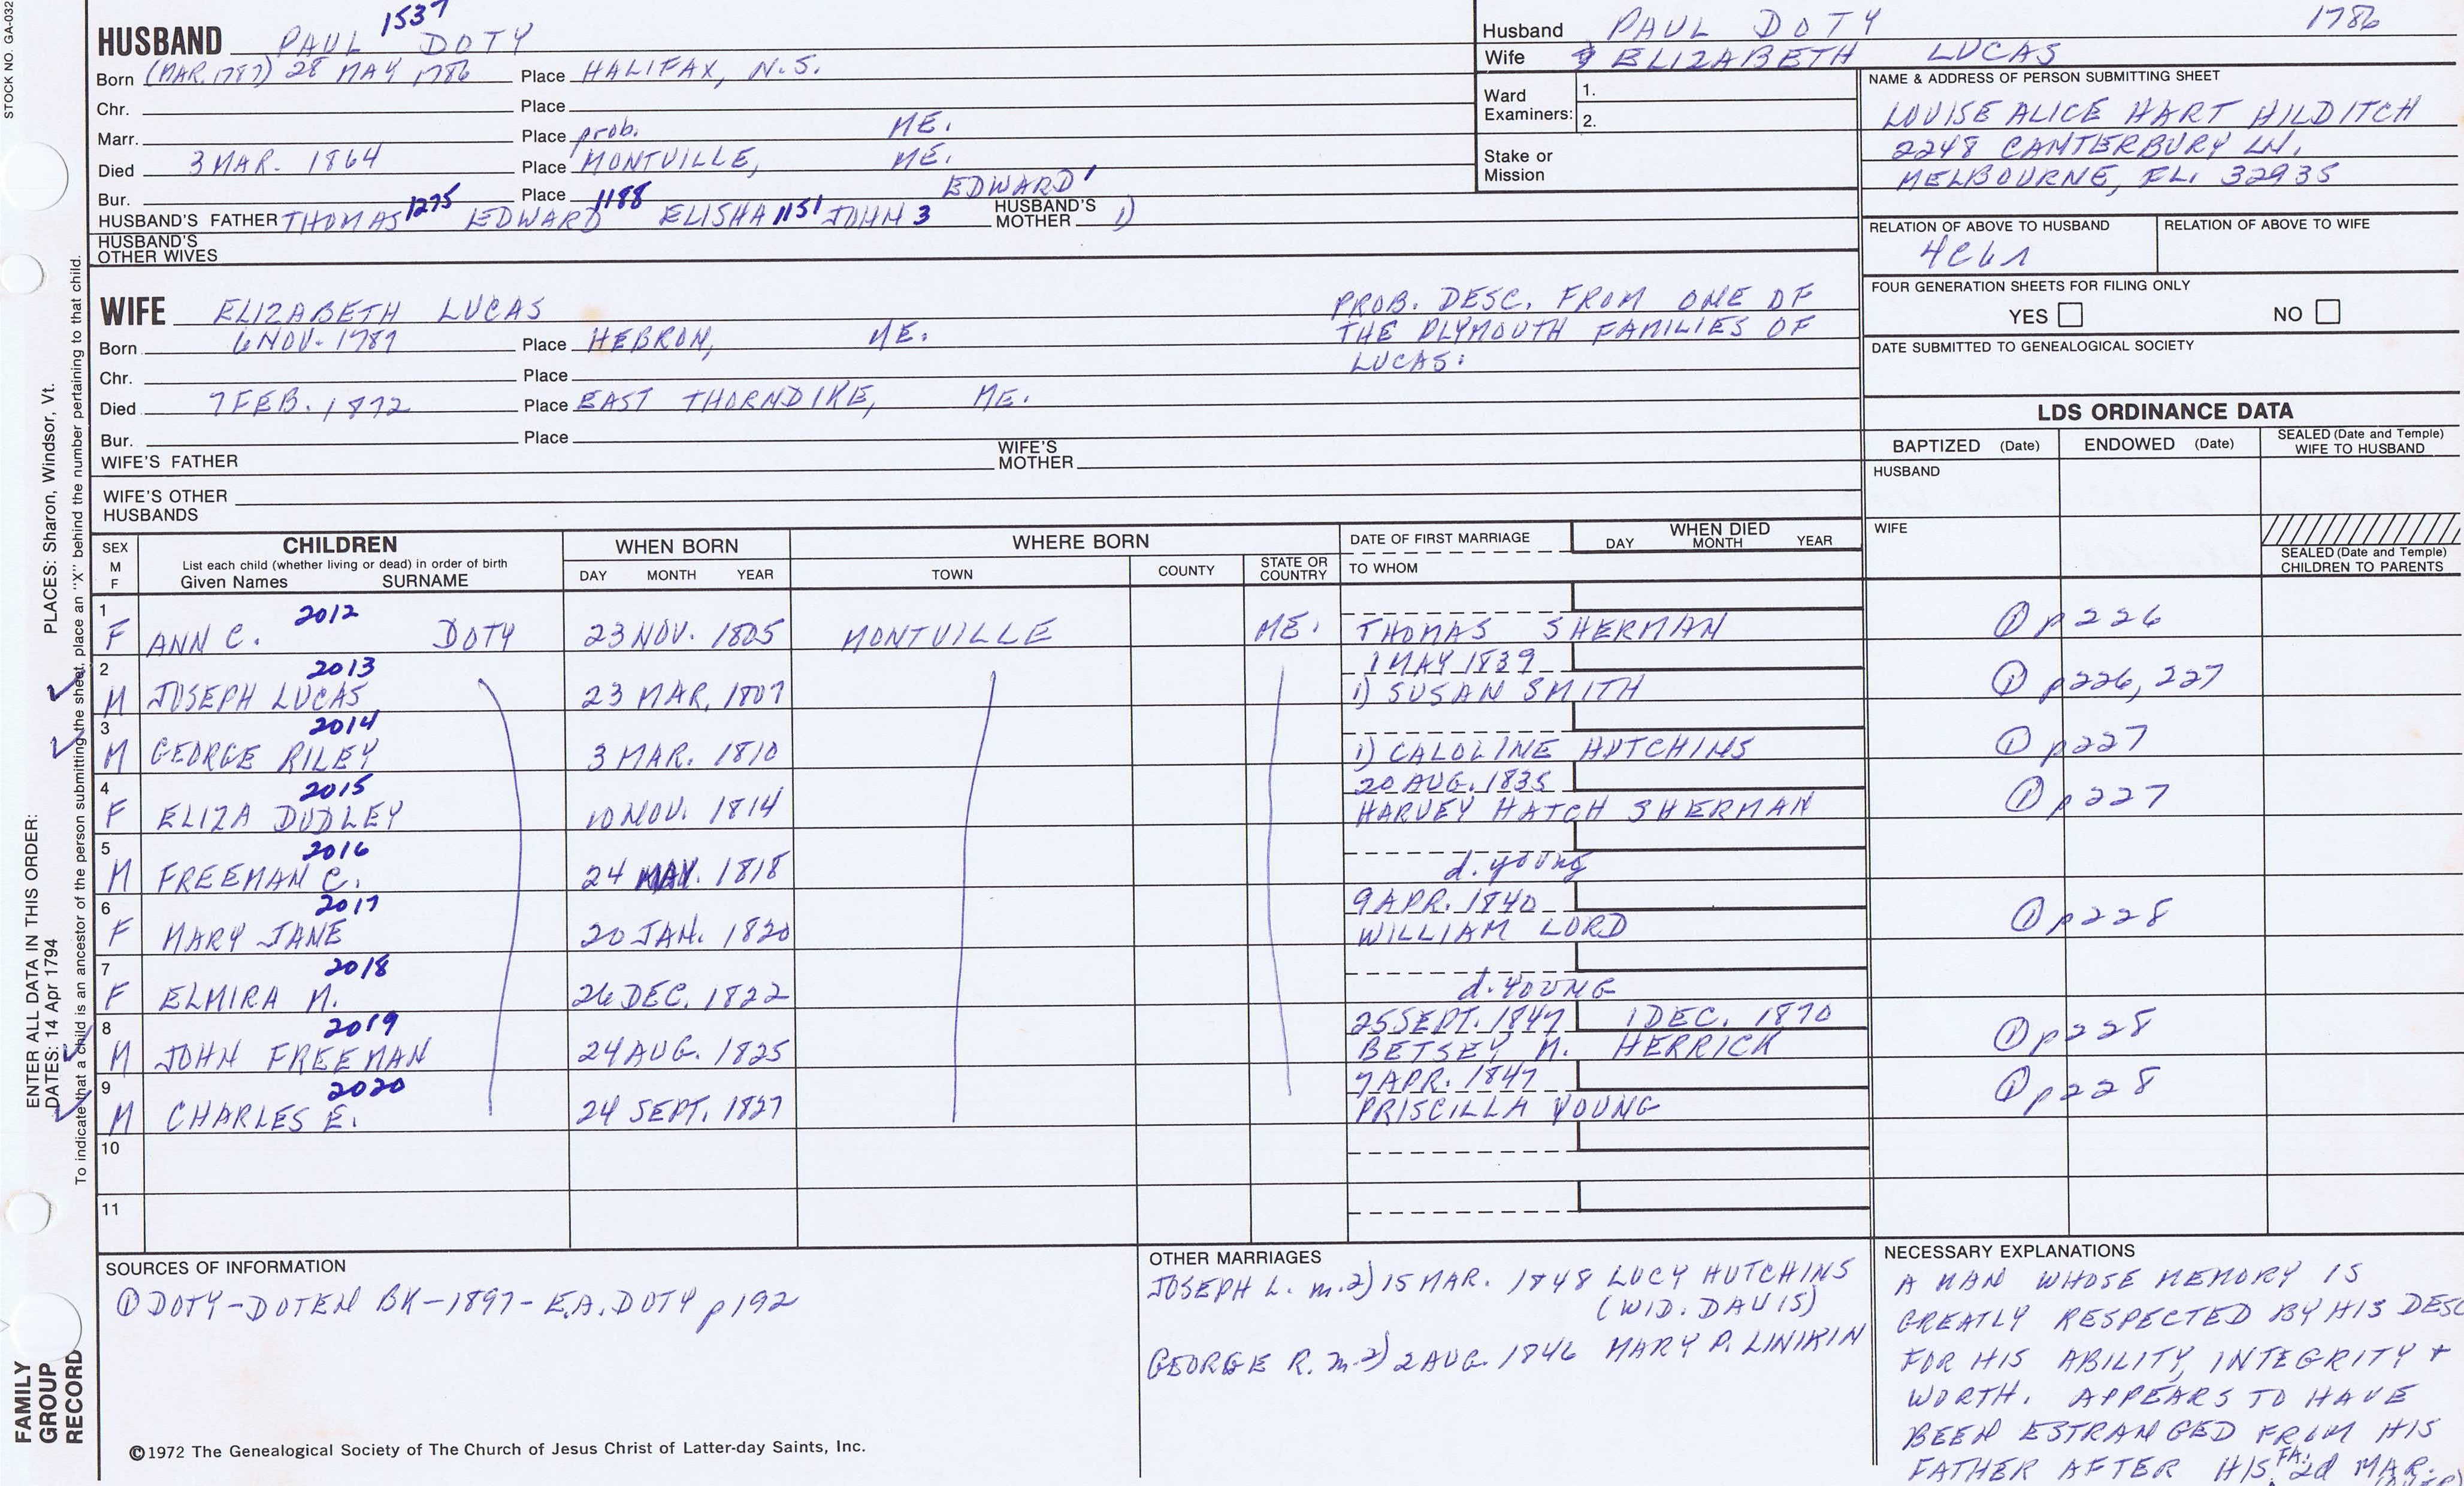 STOCK NO. GA-032
1537
HUSBAND PAUL DOTY
Born (MAR. 1787) 28 MAY 1786 Place HALIFAX, N.S.
Chr. Place
Marr. Place prob. ME.
Died 3 MAR. 1864 Place MONTVILLE, ME.
Bur. Place
HUSBAND'S FATHER THOMAS 1275 EDWARD 1188 ELISHA 1151 JOHN 3 EDWARD 1 HUSBAND'S MOTHER 1)
HUSBAND'S OTHER WIVES
Husband PAUL DOTY 1786
Wife ELIZABETH LUCAS
Ward Examiners: 1.
2.
Stake or Mission
NAME & ADDRESS OF PERSON SUBMITTING SHEET
LOUISE ALICE HART HILDITCH
2248 CANTERBURY LN.
MELBOURNE, FL. 32935
RELATION OF ABOVE TO HUSBAND
4C6r
RELATION OF ABOVE TO WIFE
FOUR GENERATION SHEETS FOR FILING ONLY
YES NO
DATE SUBMITTED TO GENEALOGICAL SOCIETY
WIFE ELIZABETH LUCAS
Born 6 NOV. 1787 Place HEBRON, ME.
Chr. Place
Died 7 FEB. 1872 Place EAST THORNDIKE, ME.
Bur. Place
PROB. DESC. FROM ONE OF
THE PLYMOUTH FAMILIES OF
LUCAS:
WIFE'S FATHER WIFE'S MOTHER
WIFE'S OTHER HUSBANDS
LDS ORDINANCE DATA
BAPTIZED (Date) ENDOWED (Date) SEALED (Date and Temple) WIFE TO HUSBAND
HUSBAND
WIFE
SEALED (Date and Temple) CHILDREN TO PARENTS
SEX M F
CHILDREN
List each child (whether living or dead) in order of birth
Given Names SURNAME
WHEN BORN
DAY MONTH YEAR
WHERE BORN
TOWN COUNTY STATE OR COUNTRY
DATE OF FIRST MARRIAGE
TO WHOM
WHEN DIED
DAY MONTH YEAR
1 2012
F ANN C. DOTY 23 NOV. 1805 MONTVILLE ME. THOMAS SHERMAN ① p226
2 2013 1 MAY 1839
M JOSEPH LUCAS 23 MAR. 1807 1) SUSAN SMITH ① p226, 227
3 2014
M GEORGE RILEY 3 MAR. 1810 1) CALOLINE HUTCHINS ① p227
4 2015 20 AUG. 1835
F ELIZA DUDLEY 10 NOV. 1814 HARVEY HATCH SHERMAN ① p227
5 2016
M FREEMAN C. 24 MAY. 1818 d. young
6 2017 9 APR. 1840
F MARY JANE 20 JAN. 1820 WILLIAM LORD ① p228
7 2018
F ELMIRA M. 26 DEC. 1822 d. YOUNG
8 2019 25 SEPT. 1847 1 DEC. 1870
M JOHN FREEMAN 24 AUG. 1825 BETSEY M. HERRICK ① p228
9 2020 7 APR. 1847
M CHARLES E. 24 SEPT. 1827 PRISCILLA YOUNG ① p228
10
11
SOURCES OF INFORMATION
① DOTY-DOTEN BK-1897-E.A. DOTY p192
©1972 The Genealogical Society of The Church of Jesus Christ of Latter-day Saints, Inc.
OTHER MARRIAGES
JOSEPH L. m. 2) 15 MAR. 1848 LUCY HUTCHINS
(WID. DAVIS)
GEORGE R. m. 2) 2 AUG. 1846 MARY P. LINIKIN
NECESSARY EXPLANATIONS
A MAN WHOSE MEMORY IS
GREATLY RESPECTED BY HIS DESC
FOR HIS ABILITY, INTEGRITY +
WORTH. APPEARS TO HAVE
BEEN ESTRANGED FROM HIS
FATHER AFTER HIS FA. 2d MAR.
ENTER ALL DATA IN THIS ORDER:
DATES: 14 Apr 1794
PLACES: Sharon, Windsor, Vt.
To indicate that a child is an ancestor of the person submitting the sheet, place an "X" behind the number pertaining to that child.
FAMILY
GROUP
RECORD